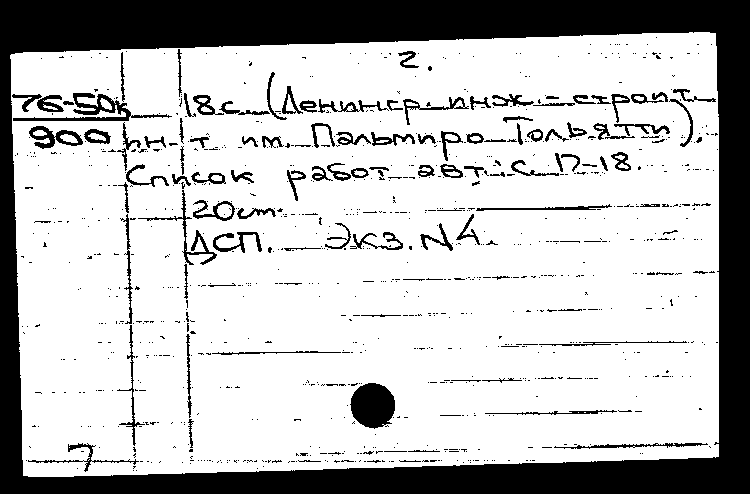 2.
76-50к 18с. (Ленингр. инж.-строит.
900 ин-т им. Пальмиро Тольятти).
Список работ авт.: с. 17-18.
20 cm.
ДСП. Экз. N 4.
7